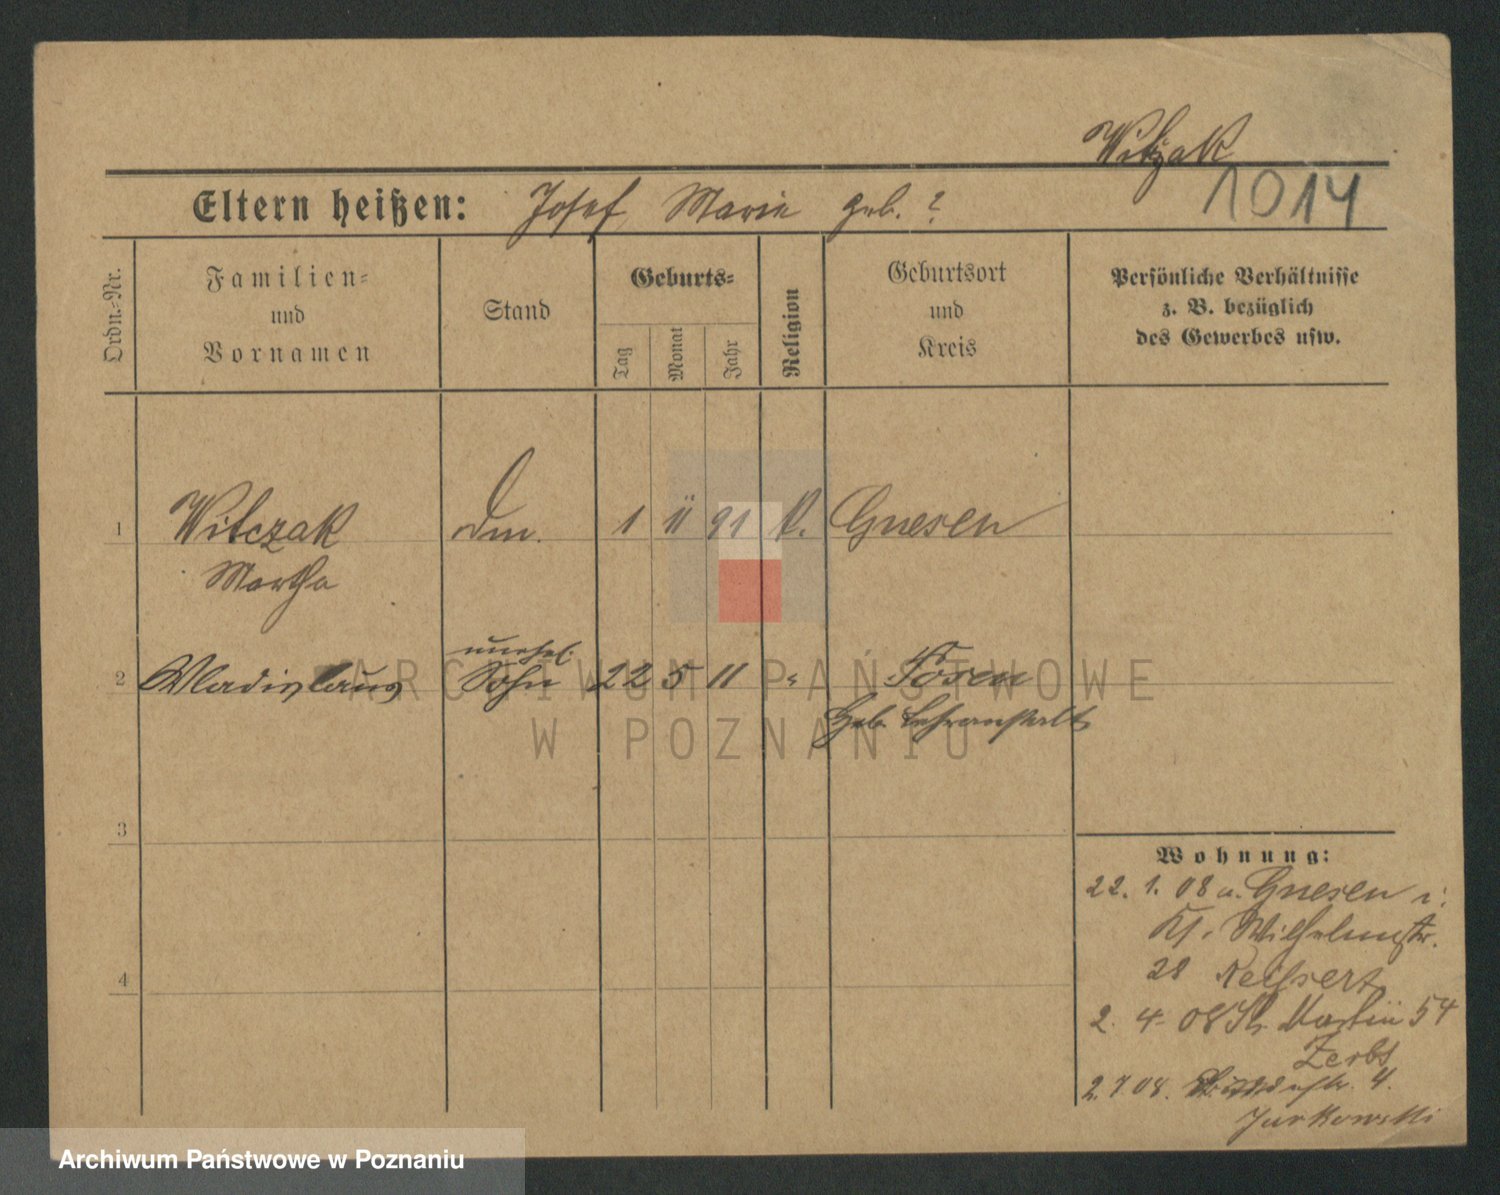 Witczak
1014
Eltern heißen: Josef, Marie geb. ?
Ordn.-Nr.
Familien-
und
Vornamen
Stand
Geburts-
Tag
Monat
Jahr
Religion
Geburtsort
und
Kreis
Persönliche Verhältnisse
z. B. bezüglich
des Gewerbes usw.
1 Witczak 1 11 91 K. Gnesen
Martha
unehel.
2 Wladislaus Sohn 22 5 11 " Posen
Heb. Lehranstalt
3
4
Wohnung:
22. 1. 08 a. Gnesen i.
Kl. Wilhelmstr.
28 Reissert
2. 4. 08 St. Martin 54
Zerbs
2. 7. 08. 4.
Jurkowski
ARCHIWUM PAŃSTWOWE
W POZNANIU
Archiwum Państwowe w Poznaniu